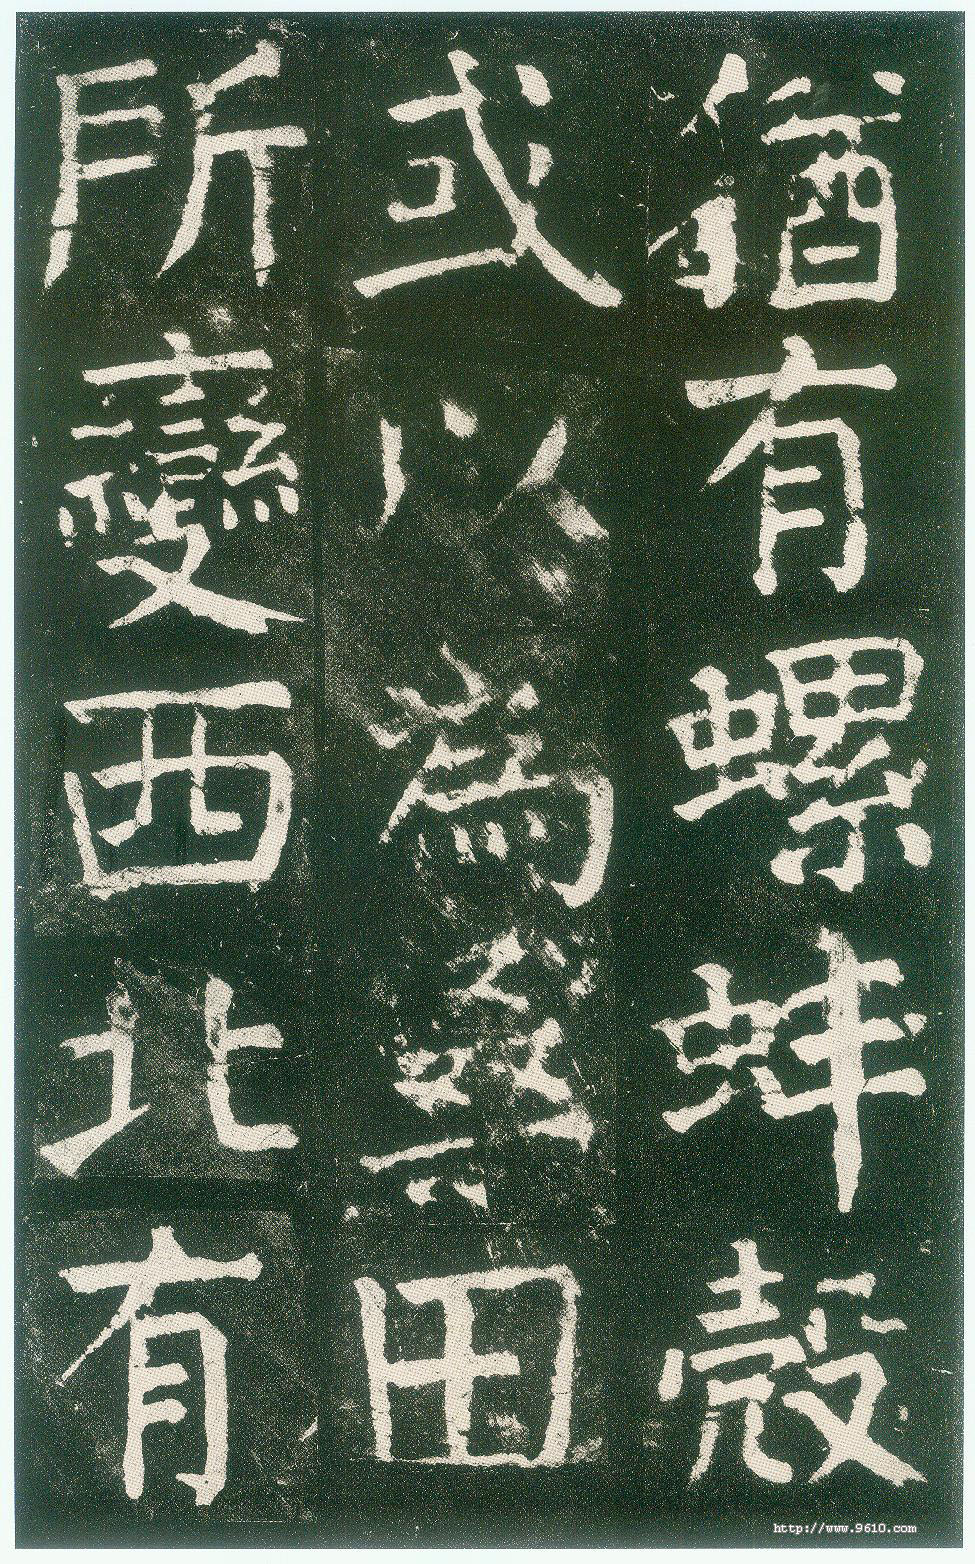 猶有螺蚌殼
或以為桑田
所變西北有
http://www.9610.com